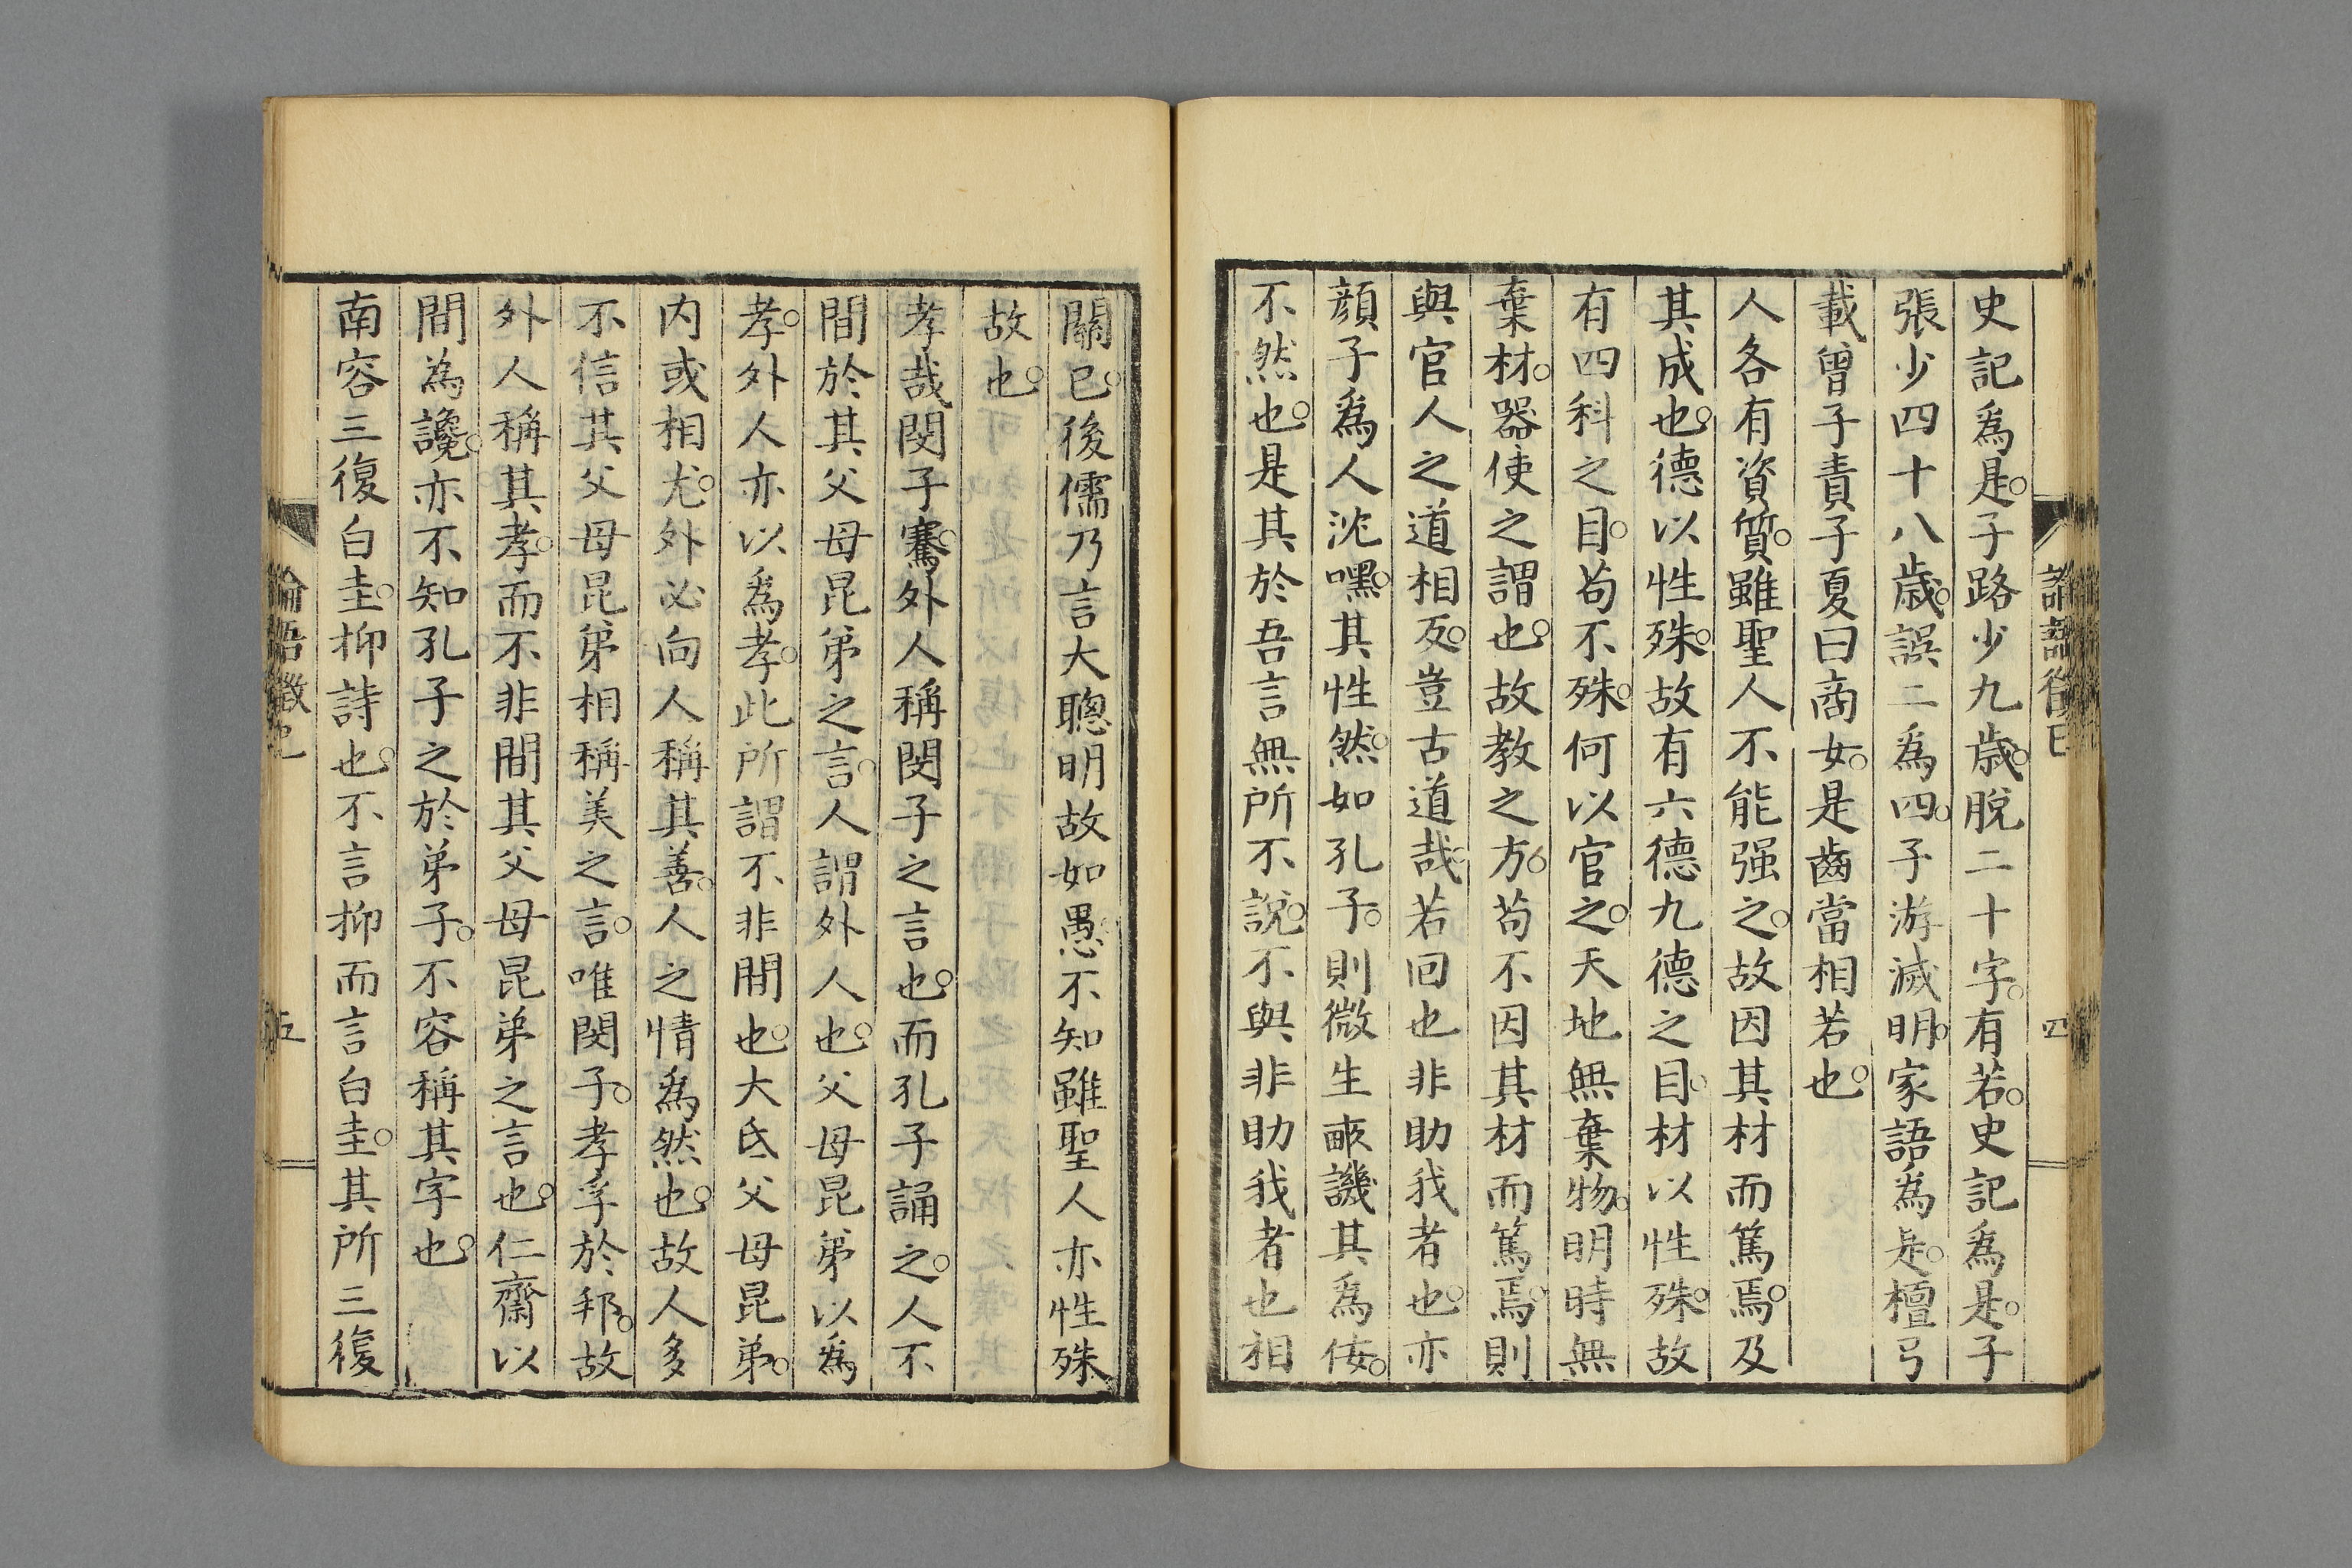 史記爲是。子路少九歳。脫二十字。有若。史記爲是。子
張少四十八歳。誤二爲四。子游滅明。家語爲是。檀弓
載曾子責子夏曰商女。是齒當相若也。
人各有資質。雖聖人不能强之。故因其材而篤焉。及
其成也。德以性殊。故有六德九德之目。材以性殊。故
有四科之目。苟不殊。何以官之。天地無棄物。明時無
棄材。器使之謂也。故教之方。苟不因其材而篤焉。則
與官人之道相反。豈古道哉。若回也非助我者也。亦
顔子爲人沈嘿。其性然。如孔子。則微生畝譏其爲佞。
不然也。是其於吾言無所不說。不與非助我者也相
四
關已。後儒乃言大聰明故如愚。不知雖聖人亦性殊
故也。
孝哉閔子騫。外人稱閔子之言也。而孔子誦之。人不
間於其父母昆弟之言。人謂外人也。父母昆弟以爲
孝。外人亦以爲孝。此所謂不非間也。大氐父母昆弟。
内或相尤。外必向人稱其善。人之情爲然也。故人多
不信其父母昆弟相稱美之言。唯閔子。孝孚於邦。故
外人稱其孝。而不非間其父母昆弟之言也。仁齋以
間爲讒。亦不知孔子之於弟子。不容稱其字也。
南容三復白圭。抑詩也。不言抑而言白圭。其所三復
論語徵
五